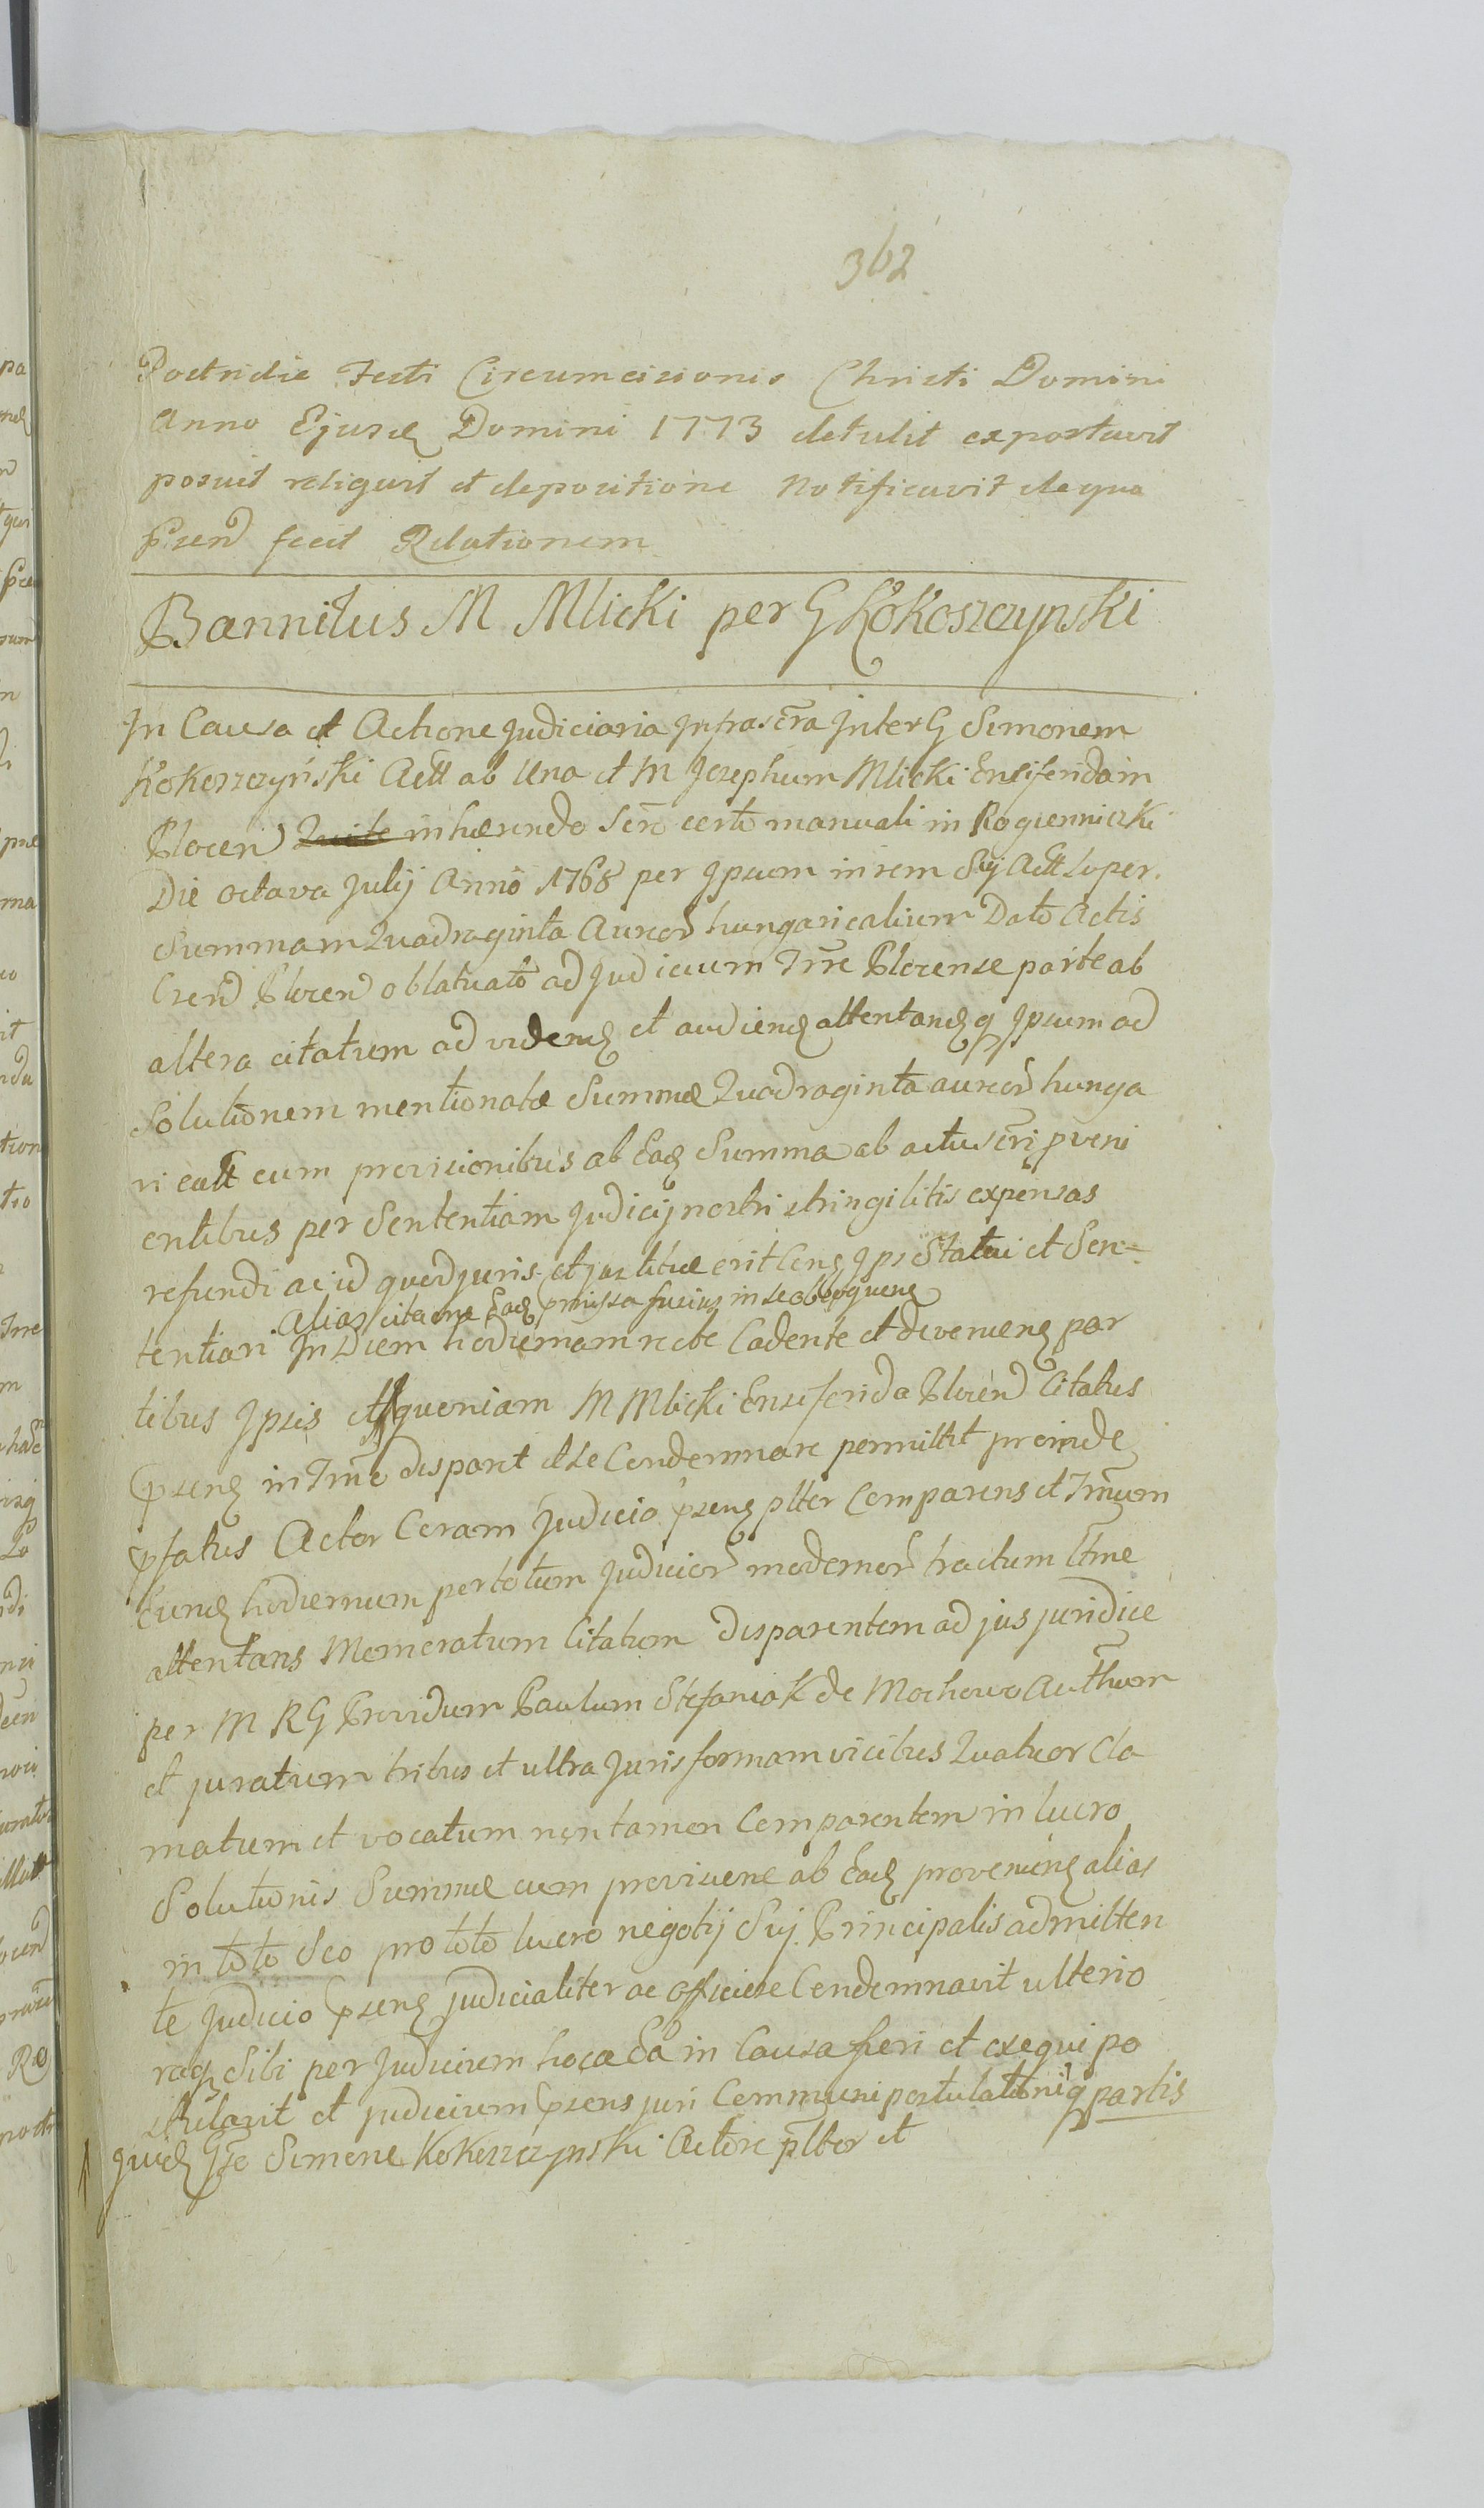 362
Postridie Festi Circumcisionis Christi Domini
Anno Ejusd Domini 1773 detulit exportavit
posuit reliquit et depositione Notificavit dequa
Psen fecit Relationem
Bannitus M Mlicki per G Kokoszczynski
In Causa et Actione Judiciaria Infrascra Inter G Simonem
Kokoszczyński Actt ab Una et M Josephum Mlicki Ensiferidam
Plocen inhærendo Scro certo manuali in Rogienniczki
Die octava Julij Anno 1768 per Ipsum in rem Suj Actt super
Summam Quadraginta Aureor hungaricalium Dato Actis
Csen Plocen oblatuato ad Judicium Trre Plocense parte ab
altera citatum ad vidend et audiend attentandq Ipsum ad
Solutionem mentionatæ Summæ Quadraginta aureor hunga
ricalt cum provisionibus ab Ead Summa ab actu scri pveni
entibus per Sententiam Judicij nostri stringi litis expensas
refundi ac id quod juris et justitiæ erit Cens Ipsi Statui et Sen=
alias citaone Ead pmissa fusius in se obloquene
tentiari In Diem hodiernam recte Cadente et deveniens par
tibus Ipsis quoniam M Mlicki Ensiferida Plocen Citatus
psens in Trno disparet et se Condemnare permittit proinde
pfatus Actor Coram Judicio psens plter Comparens et Trnum
Eund hodiernum per totum Judicior modernor tractum ltme
attentans Memoratum Citatum disparentem ad jus juridice
per M R G Providum Paulum Stefaniak de Mochowo Authum
et juratum tribus et ultra Juris formam vicibus Quatuor Cla
matum et vocatum non tamen Comparentem in lucro
Solutionis Summæ cum provisione ab Ead proveniens alias
in toto Seo pro toto lucro negotij Suj Principalis admitten
te Judicio psens judicialiter ac officiose Condemnavit ulterio
raq Sibi per Judicium hocce Ea in Causa fieri et exequi po
stulavit et judicium psens juri Communi postulationiq partis
quid Gso Simone Kokoszczynski Actore plter et